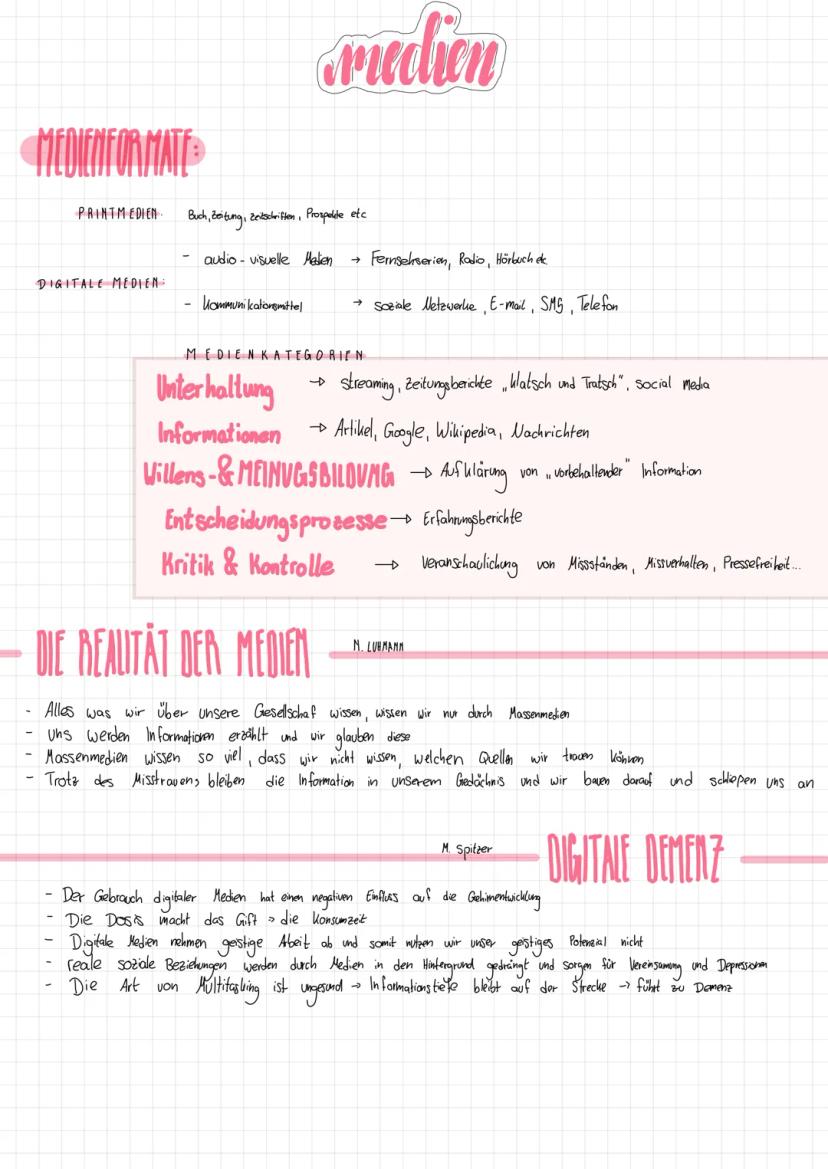 medien
MEDIENFORMATE:
PRINTMEDIEN: Buch, Zeitung, Zeitschriften, Prospekte etc
- audio-visuelle Medien → Fernsehserien, Radio, Hörbuch etc
DIGITALE MEDIEN:
- kommunikationsmittel → soziale Netzwerke, E-mail, SMS, Telefon
MEDIENKATEGORIEN
Unterhaltung → streaming, Zeitungsberichte „Klatsch und Tratsch", social Media
Informationen → Artikel, Google, Wikipedia, Nachrichten
Willens-& MEINUGSBILDUNG → Aufklärung von „vorbehaltender" Information
Entscheidungsprozesse → Erfahrungsberichte
Kritik & Kontrolle → Veranschaulichung von Missständen, Missverhalten, Pressefreiheit...
DIE REALITÄT DER MEDIEN N. LUHMANN
- Alles was wir über unsere Gesellschaf wissen, wissen wir nur durch Massenmedien
- uns werden Informationen erzählt und wir glauben diese
- Massenmedien wissen so viel, dass wir nicht wissen, welchen Quellen wir trauen können
- Trotz des Misstrauens bleiben die Information in unserem Gedächnis und wir bauen darauf und schliepen uns an
M. Spitzer DIGITALE DEMENZ
- Der Gebrauch digitaler Medien hat einen negativen Einfluss auf die Gehirnentwicklung
- Die Dosis macht das Gift > die Konsumzeit
- Digitale Medien nehmen geistige Abeit ab und somit nutzen wir unser geistiges Potenzial nicht
- reale soziale Beziehungen werden durch Medien in den Hintergrund gedrängt und sorgen für Vereinsamung und Depressionen
- Die Art von Multitasking ist ungesund → Informationstiefe bleibt auf der Strecke → führt zu Demenz